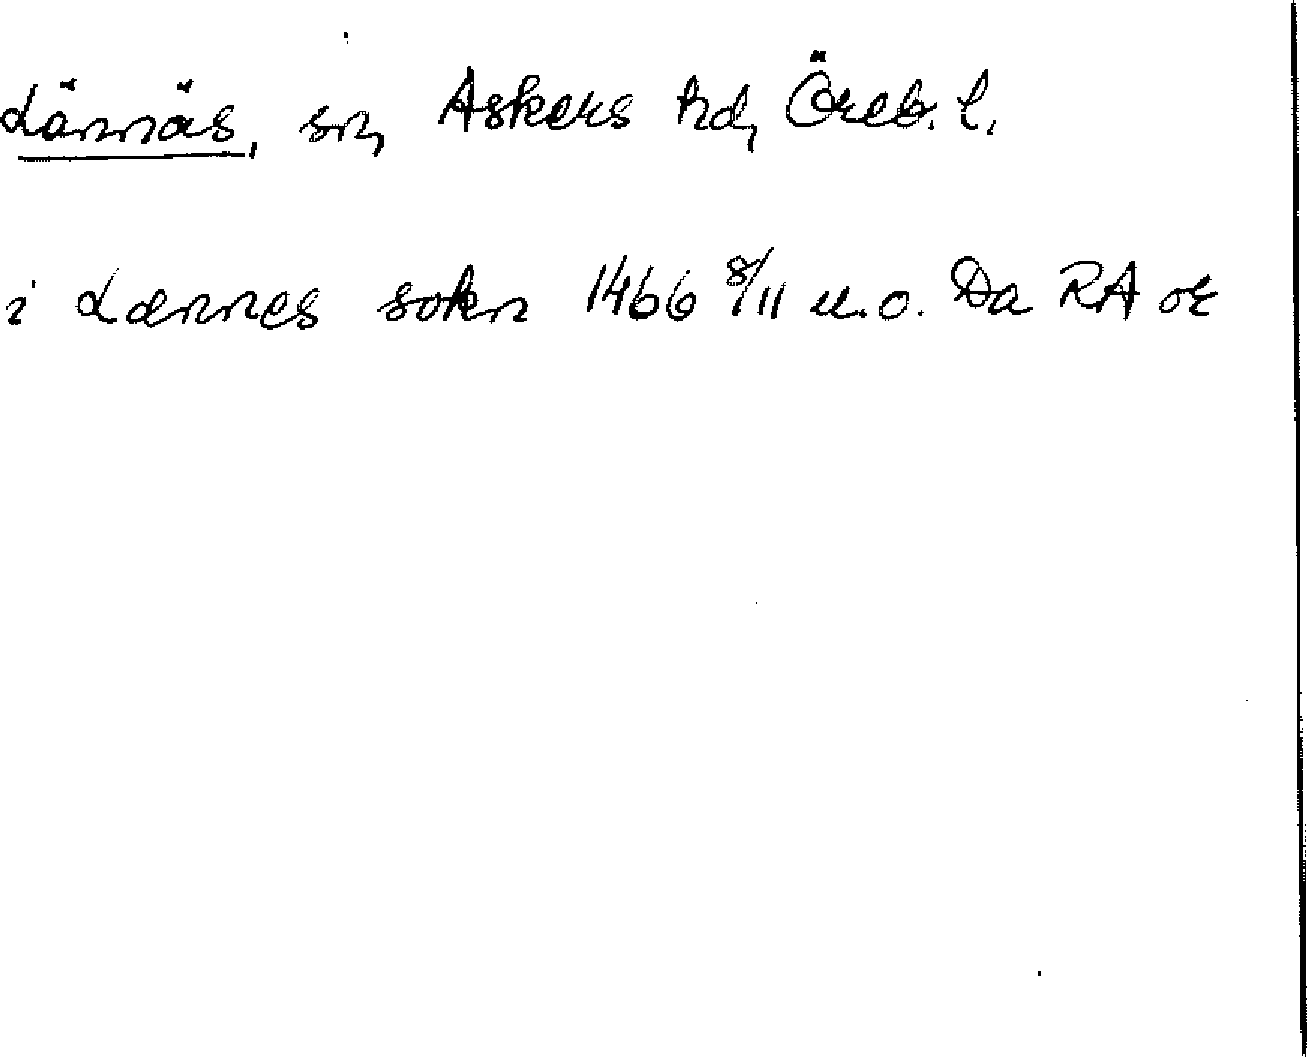 Lännäs, sn, Askers hd, Öreb. l.
i Lænnes sokn 1466 8/11 u.o. Da RA or